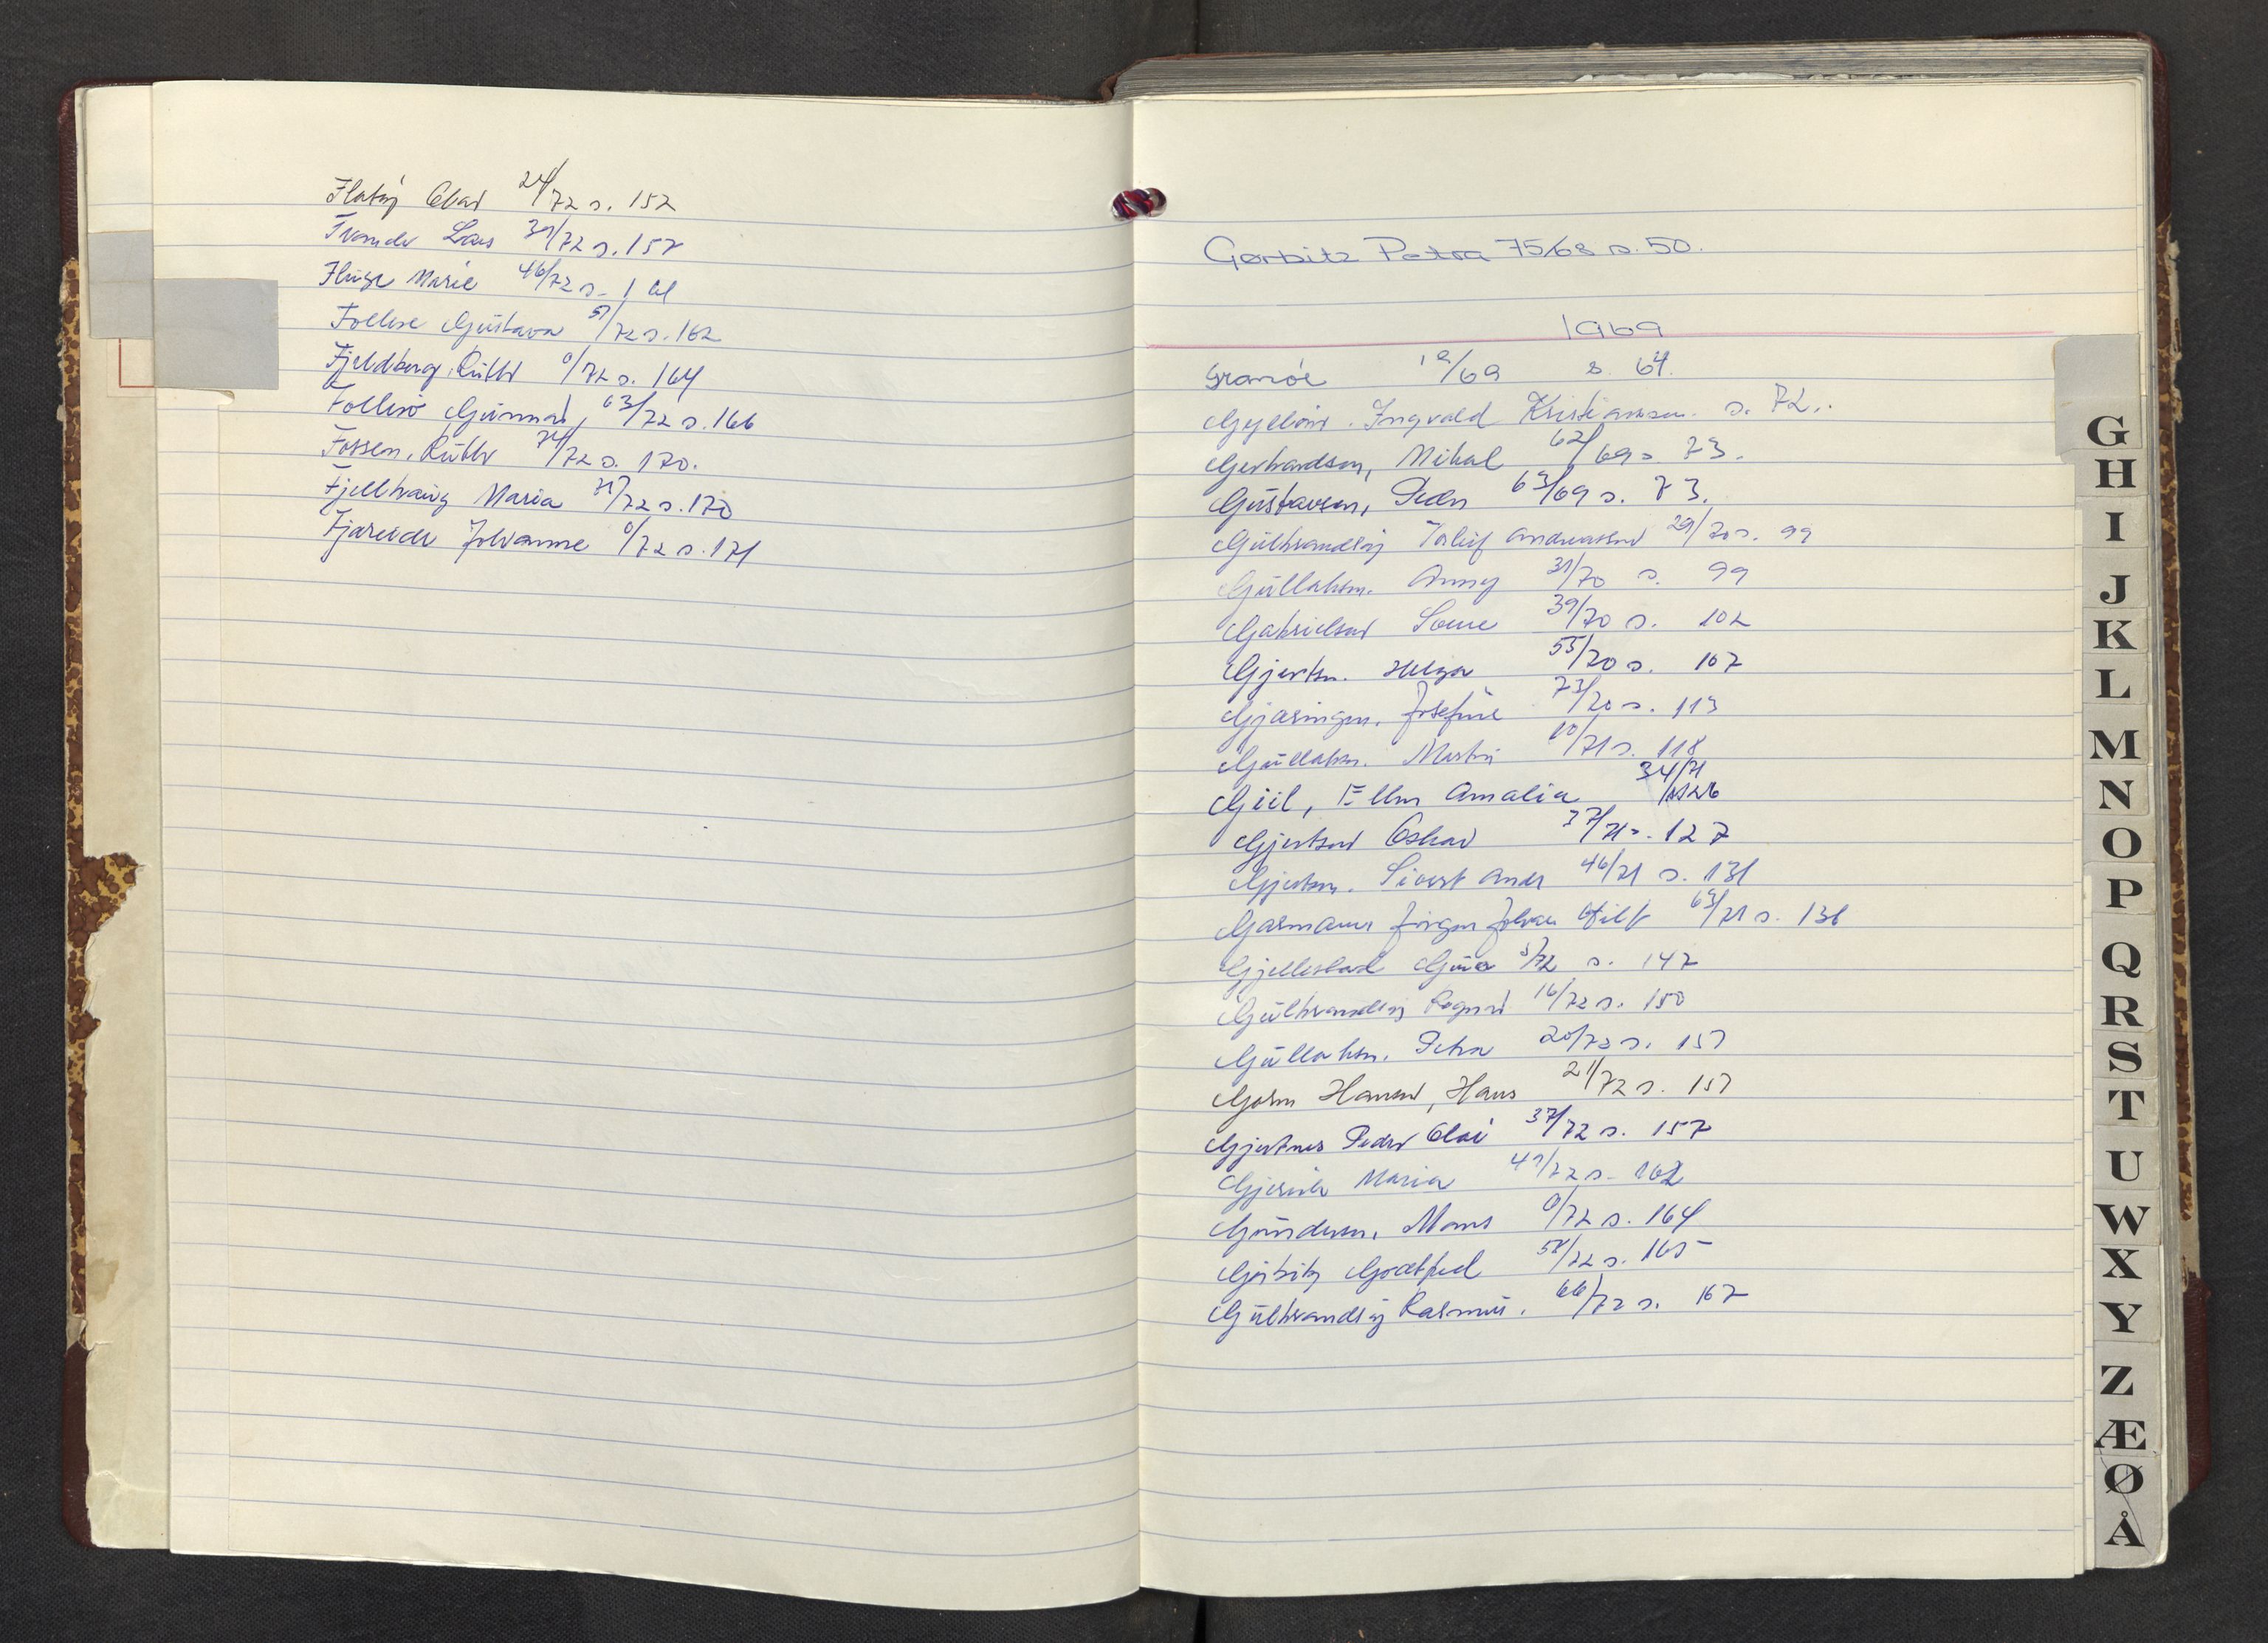 Flatøy Olav 24/72 s. 152
Lars 39/72 s. 157
Fluge Marie 46/72 s. 161
Follese Gustava 51/72 s. 162
Fjeldberg, Ruth 0/72 s. 164
Follesø Gunnar, 63/72 s. 166
Fossen, Ruth 74/72 s. 170.
Maria 71/72 s. 170
Fjæreide Johanne 0/72 s. 171
Gørbitz Petra 75/68 s. 50.
1969
/69 s. 64.
Ingvald Kristiansen s. 72.
Gerhardsen, Mikal 62/69 s 73.
Gustavsen, Peder 63/69 s. 73.
Gulbrandsøy Torleif Andreassen 29/70 s. 99
Gullaksen. Anny 31/70 s. 99
Gabrielsen 39/70 s. 102
Gjertsen. Helga 55/70 s. 107
Josefine 73/70 s. 113
Gullaksen. Martin 10/71 s. 118
Giil, Ellen Amalia 34/71 s 126
Gjertsen Oskar 37/71 s. 127
Gjertsen. Sivert Andr 46/71 s. 131
Garmann Jørgen Johan 63/71 s. 136
Gjellestad 5/72 s. 147
Gulbrandsøy Ragnar 16/72 s. 150
Gullaksen. Petra 20/72 s. 151
Gorm Hansen, Hans 21/72 s. 151
Gjertnes Peder Olai 37/72 s. 157
Maria 47/72 s. 162
Gundersen, Mons 0/72 s. 164
Gørbitz Godtfred 58/72 s. 165
Gulbrandsøy Rasmus. 66/72 s. 167
G
H
I
J
K
L
M
N
O
P
Q
R
S
T
U
W
X
Y
Z
Æ
Ø
Å